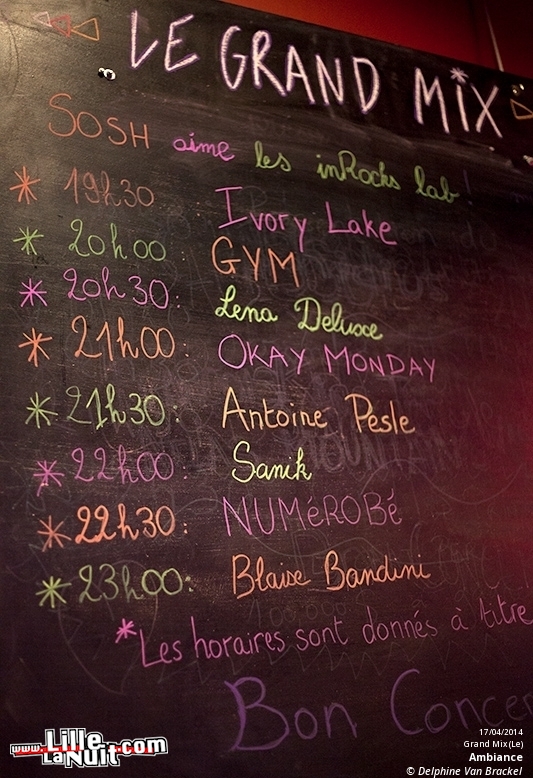 LE GRAND MiX
SOSH aime les inRocks lab!
* 19h30 Ivory Lake
* 20h00: GYM
* 20h30: Lena Deluxe
* 21h00: OKAY MONDAY
* 21h30: Antoine Pesle
* 22h00: Sanik
* 22h30: NUMéROBé
* 23h00: Blaise Bandini
*Les horaires sont donnés à titre
Bon Concer
www.LilleLaNuit.com
17/04/2014
Grand Mix(Le)
Ambiance
© Delphine Van Brackel